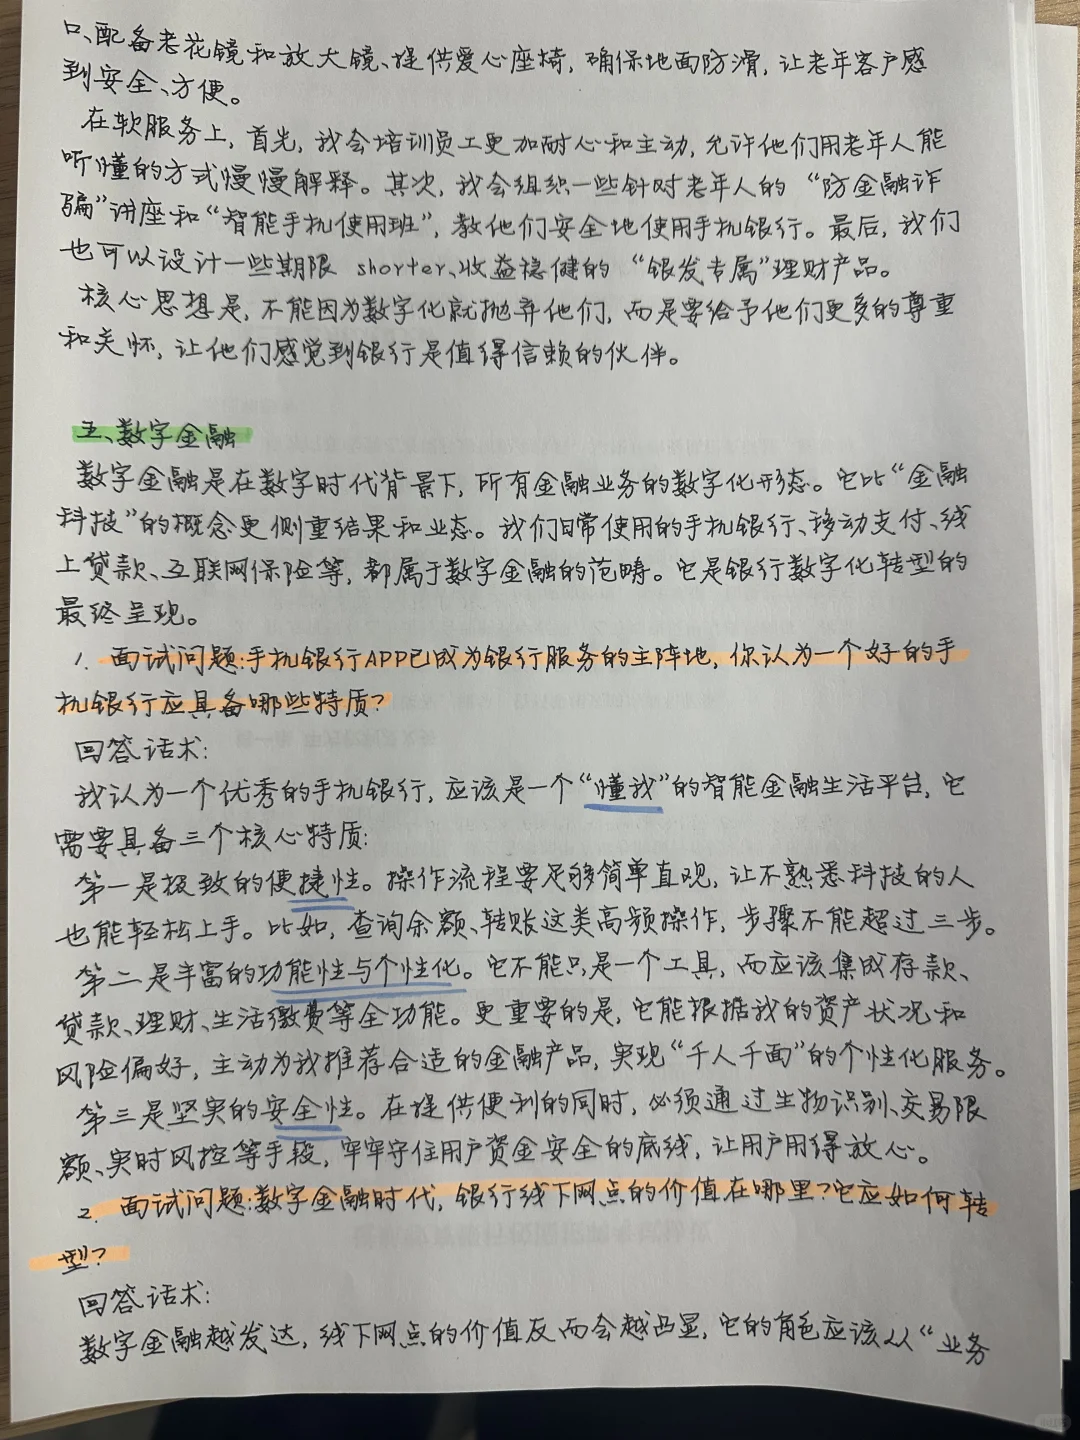 口、配备老花镜和放大镜、提供爱心座椅,确保地面防滑,让老年客户感
到安全、方便。
在软服务上,首先,我会培训员工更加耐心和主动,允许他们用老年人能
听懂的方式慢慢解释。其次,我会组织一些针对老年人的“防金融诈
骗”讲座和“智能手机使用班”,教他们安全地使用手机银行。最后,我们
也可以设计一些期限 shorter、收益稳健的“银发专属”理财产品。
核心思想是,不能因为数字化就抛弃他们,而是要给予他们更多的尊重
和关怀,让他们感觉到银行是值得信赖的伙伴。
五、数字金融
数字金融是在数字时代背景下,所有金融业务的数字化形态。它比“金融
科技”的概念更侧重结果和业态。我们日常使用的手机银行、移动支付、线
上贷款、互联网保险等,都属于数字金融的范畴。它是银行数字化转型的
最终呈现。
1. 面试问题:手机银行APP已成为银行服务的主阵地,你认为一个好的手
机银行应具备哪些特质?
回答话术:
我认为一个优秀的手机银行,应该是一个“懂我”的智能金融生活平台,它
需要具备三个核心特质:
第一是极致的便捷性。操作流程要足够简单直观,让不熟悉科技的人
也能轻松上手。比如,查询余额、转账这类高频操作,步骤不能超过三步。
第二是丰富的功能性与个性化。它不能只是一个工具,而应该集成存款、
贷款、理财、生活缴费等全功能。更重要的是,它能根据我的资产状况和
风险偏好,主动为我推荐合适的金融产品,实现“千人千面”的个性化服务。
第三是坚实的安全性。在提供便利的同时,必须通过生物识别、交易限
额、实时风控等手段,牢牢守住用户资金安全的底线,让用户用得放心。
2. 面试问题:数字金融时代,银行线下网点的价值在哪里?它应如何转
型?
回答话术:
数字金融越发达,线下网点的价值反而会越凸显,它的角色应该从“业务